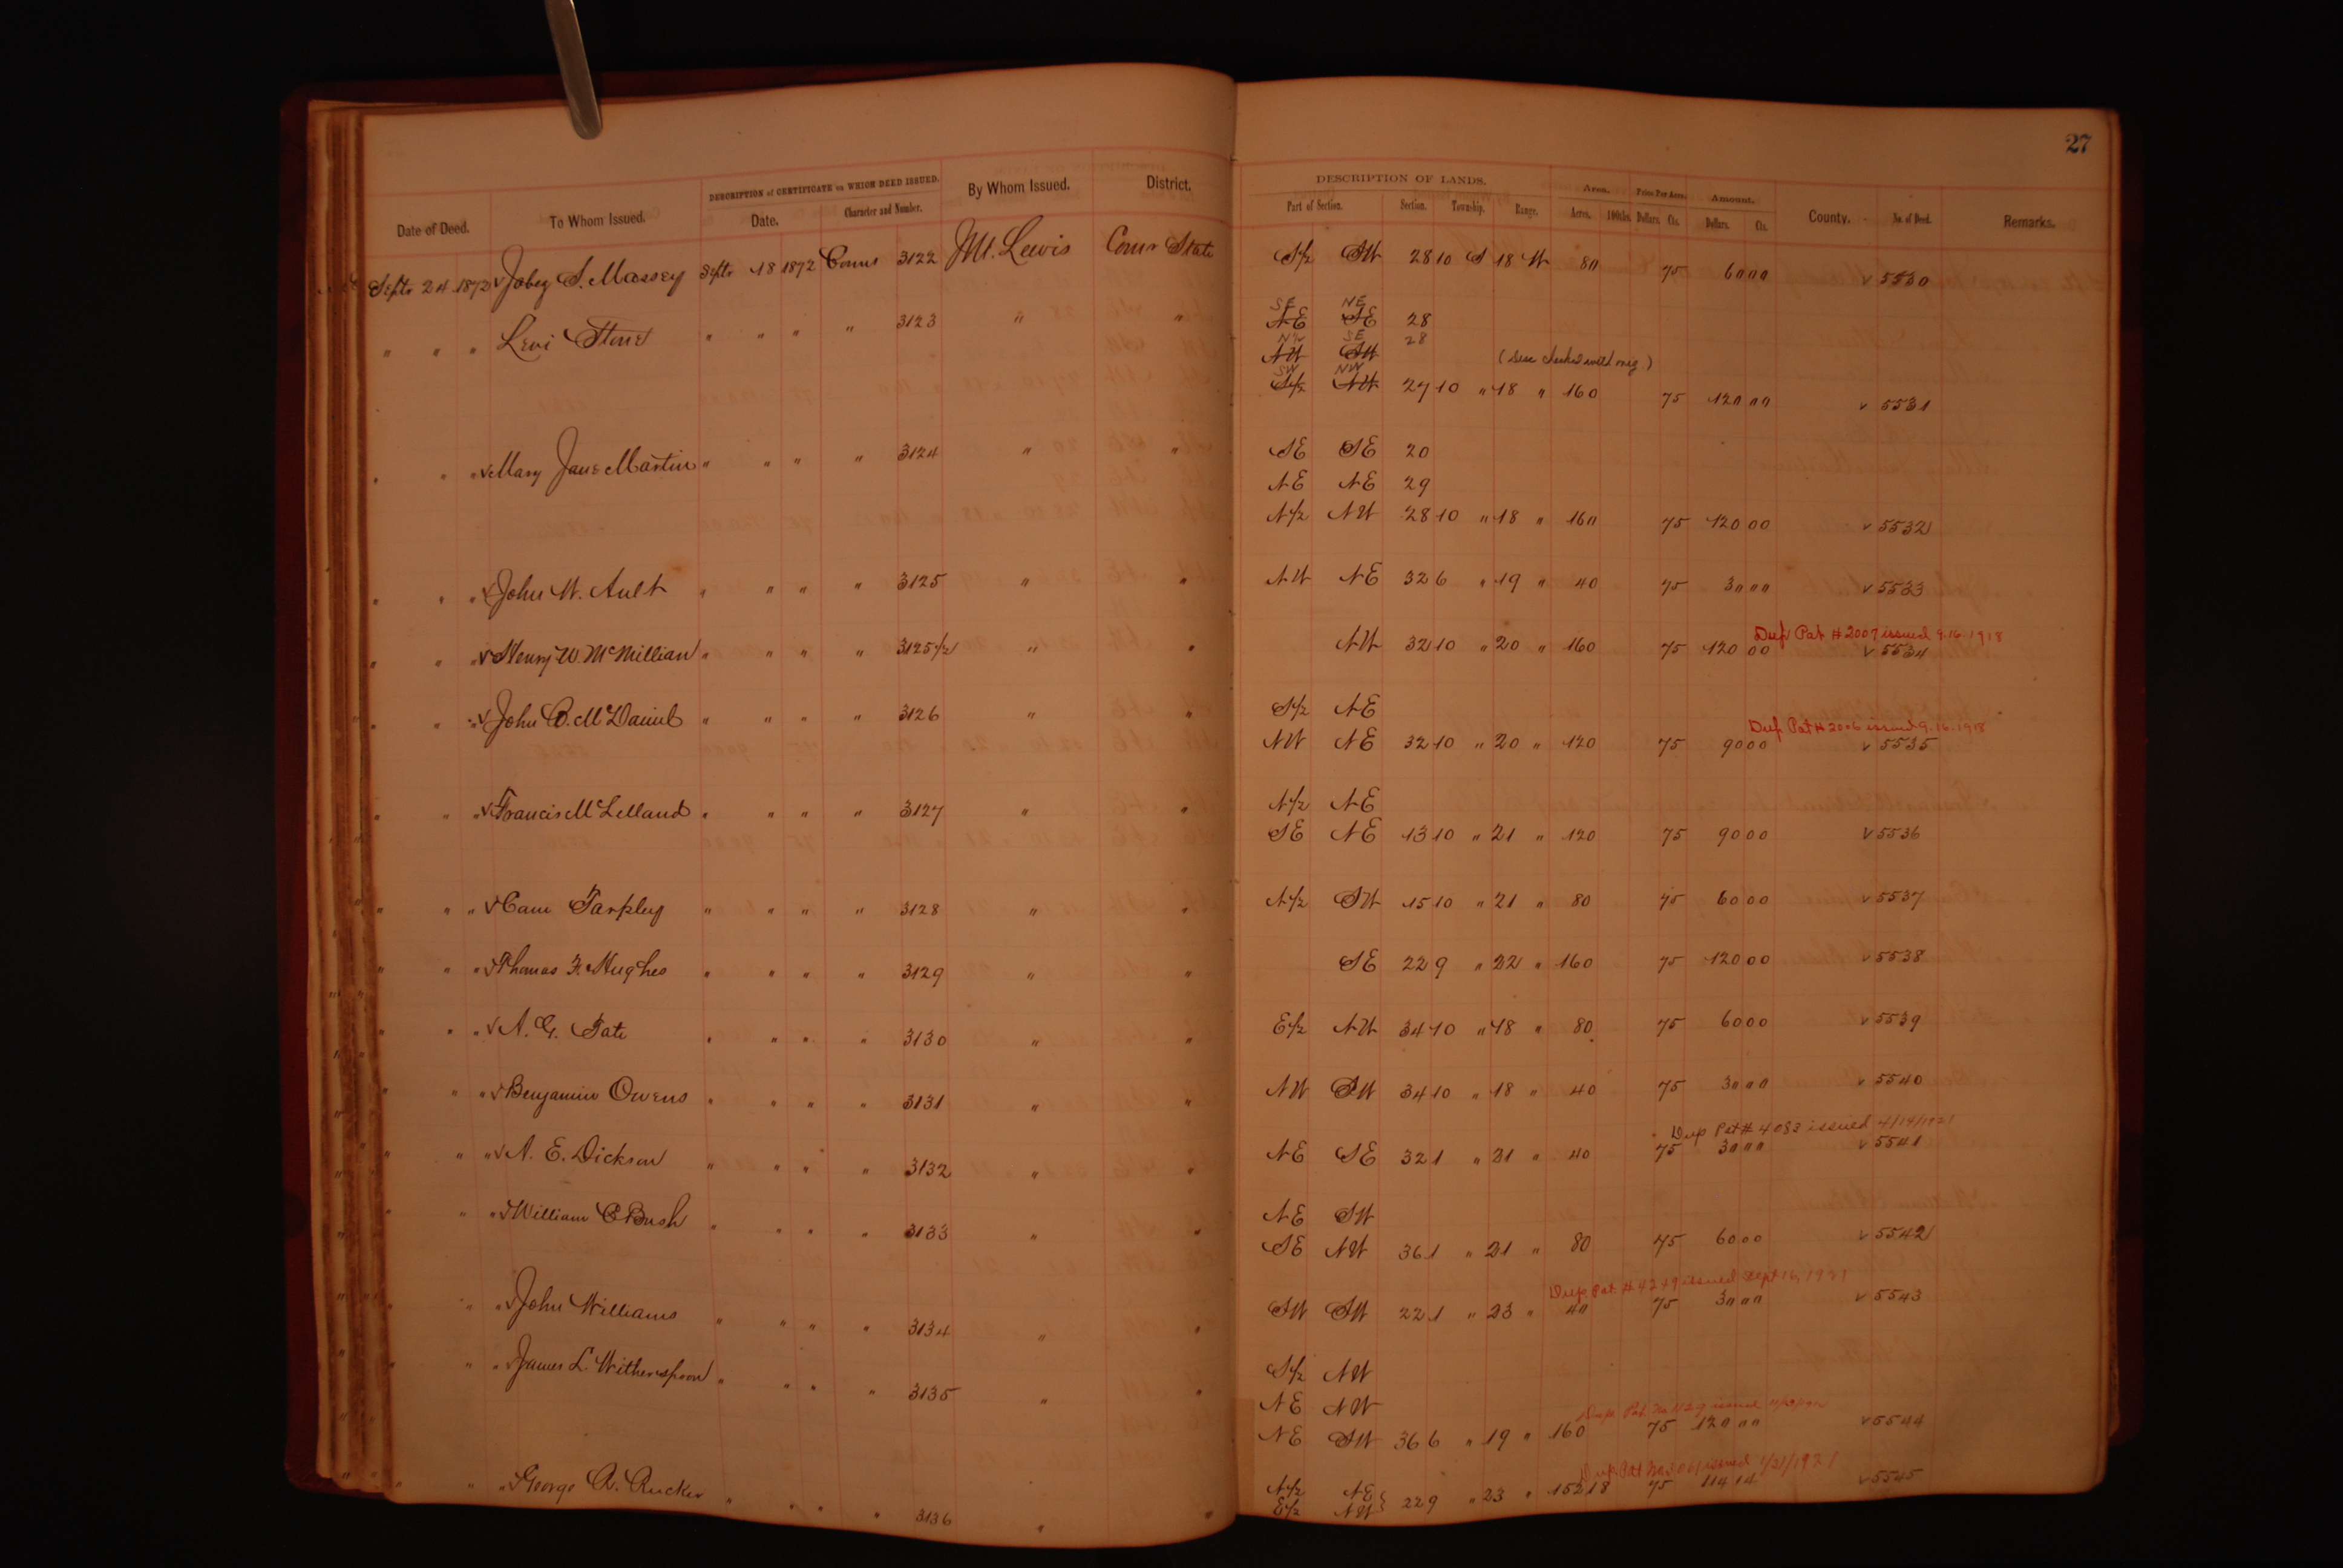 27
DESCRIPTION of CERTIFICATE on WHICH DEED ISSUED. By Whom Issued. District. DESCRIPTION OF LANDS. Area. Price Per Acre. Amount. County. No. of Deed. Remarks.
Date of Deed. To Whom Issued. Date. Character and Number. Part of Section. Section. Township. Range. Acres. 100ths. Dollars. Cts. Dollars. Cts.
Septr 24 1872 √ Jabez S. Massey Septr 18 1872 Comr 3122 Mt. Lewis Comr State S½ SW 28 10 S 18 W 80 75 60 00 √ 5530
" " " Levi Stone " " " " 3123 " "
SE NE
NE SE 28
NW SE 28
NW SW
SW NW (Desc checked with orig.)
S½ NW 27 10 " 18 " 160 75 120 00 √ 5531
" " " √ Mary Jane Martin " " " " 3124 " " SE SE 20
NE NE 29
N½ NW 28 10 " 18 " 160 75 120 00 √ 5532
" " " √ John W. Ault " " " " 3125 " " NW NE 32 6 " 19 " 40 75 30 00 √ 5533
Dup Pat # 2007 issued 9.16.1918
" " " √ Henry W. McMillian " " " " 3125½ " " NW 32 10 " 20 " 160 75 120 00 √ 5534
" " " √ John B. McDaniel " " " " 3126 " " S½ NE
Dup Pat # 2006 issued 9.16.1918
NW NE 32 10 " 20 " 120 75 90 00 √ 5535
" " " √ Francis McLelland " " " " 3127 " " N½ NE
SE NE 13 10 " 21 " 120 75 90 00 √ 5536
" " " √ Cam Tarpley " " " " 3128 " " N½ SW 15 10 " 21 " 80 75 60 00 √ 5537
" " " √ Thomas F. Hughes " " " " 3129 " " SE 22 9 " 22 " 160 75 120 00 √ 5538
" " " √ A. G. Tate " " " " 3130 " " E½ NW 34 10 " 18 " 80 75 60 00 √ 5539
" " " √ Benjamin Owens " " " " 3131 " " NW SW 34 10 " 18 " 40 75 30 00 √ 5540
Dup Pat # 4083 issued 4/14/1921
" " " √ A. E. Dickson " " " " 3132 " " NE SE 32 1 " 21 " 40 75 30 00 √ 5541
" " " √ William C Bush " " " " 3133 " " NE SW
SE NW 36 1 " 21 " 80 75 60 00 √ 5542
Dup Pat # 4249 issued Sept 16, 1921
" " " √ John Williams " " " " 3134 " " SW SW 22 1 " 23 " 40 75 30 00 √ 5543
" " " √ James L. Witherspoon " " " " 3135 " " S½ NW
NE NW
Dup. Pat. No issued
NE SW 36 6 " 19 " 160 75 120 00 √ 5544
Dup Pat No. issued 1/31/1921
" " " √ George A. Rucker " " " " 3136 " " N½ NE } 22 9 " 23 " 152 18 75 114 14 √ 5545
E½ NW